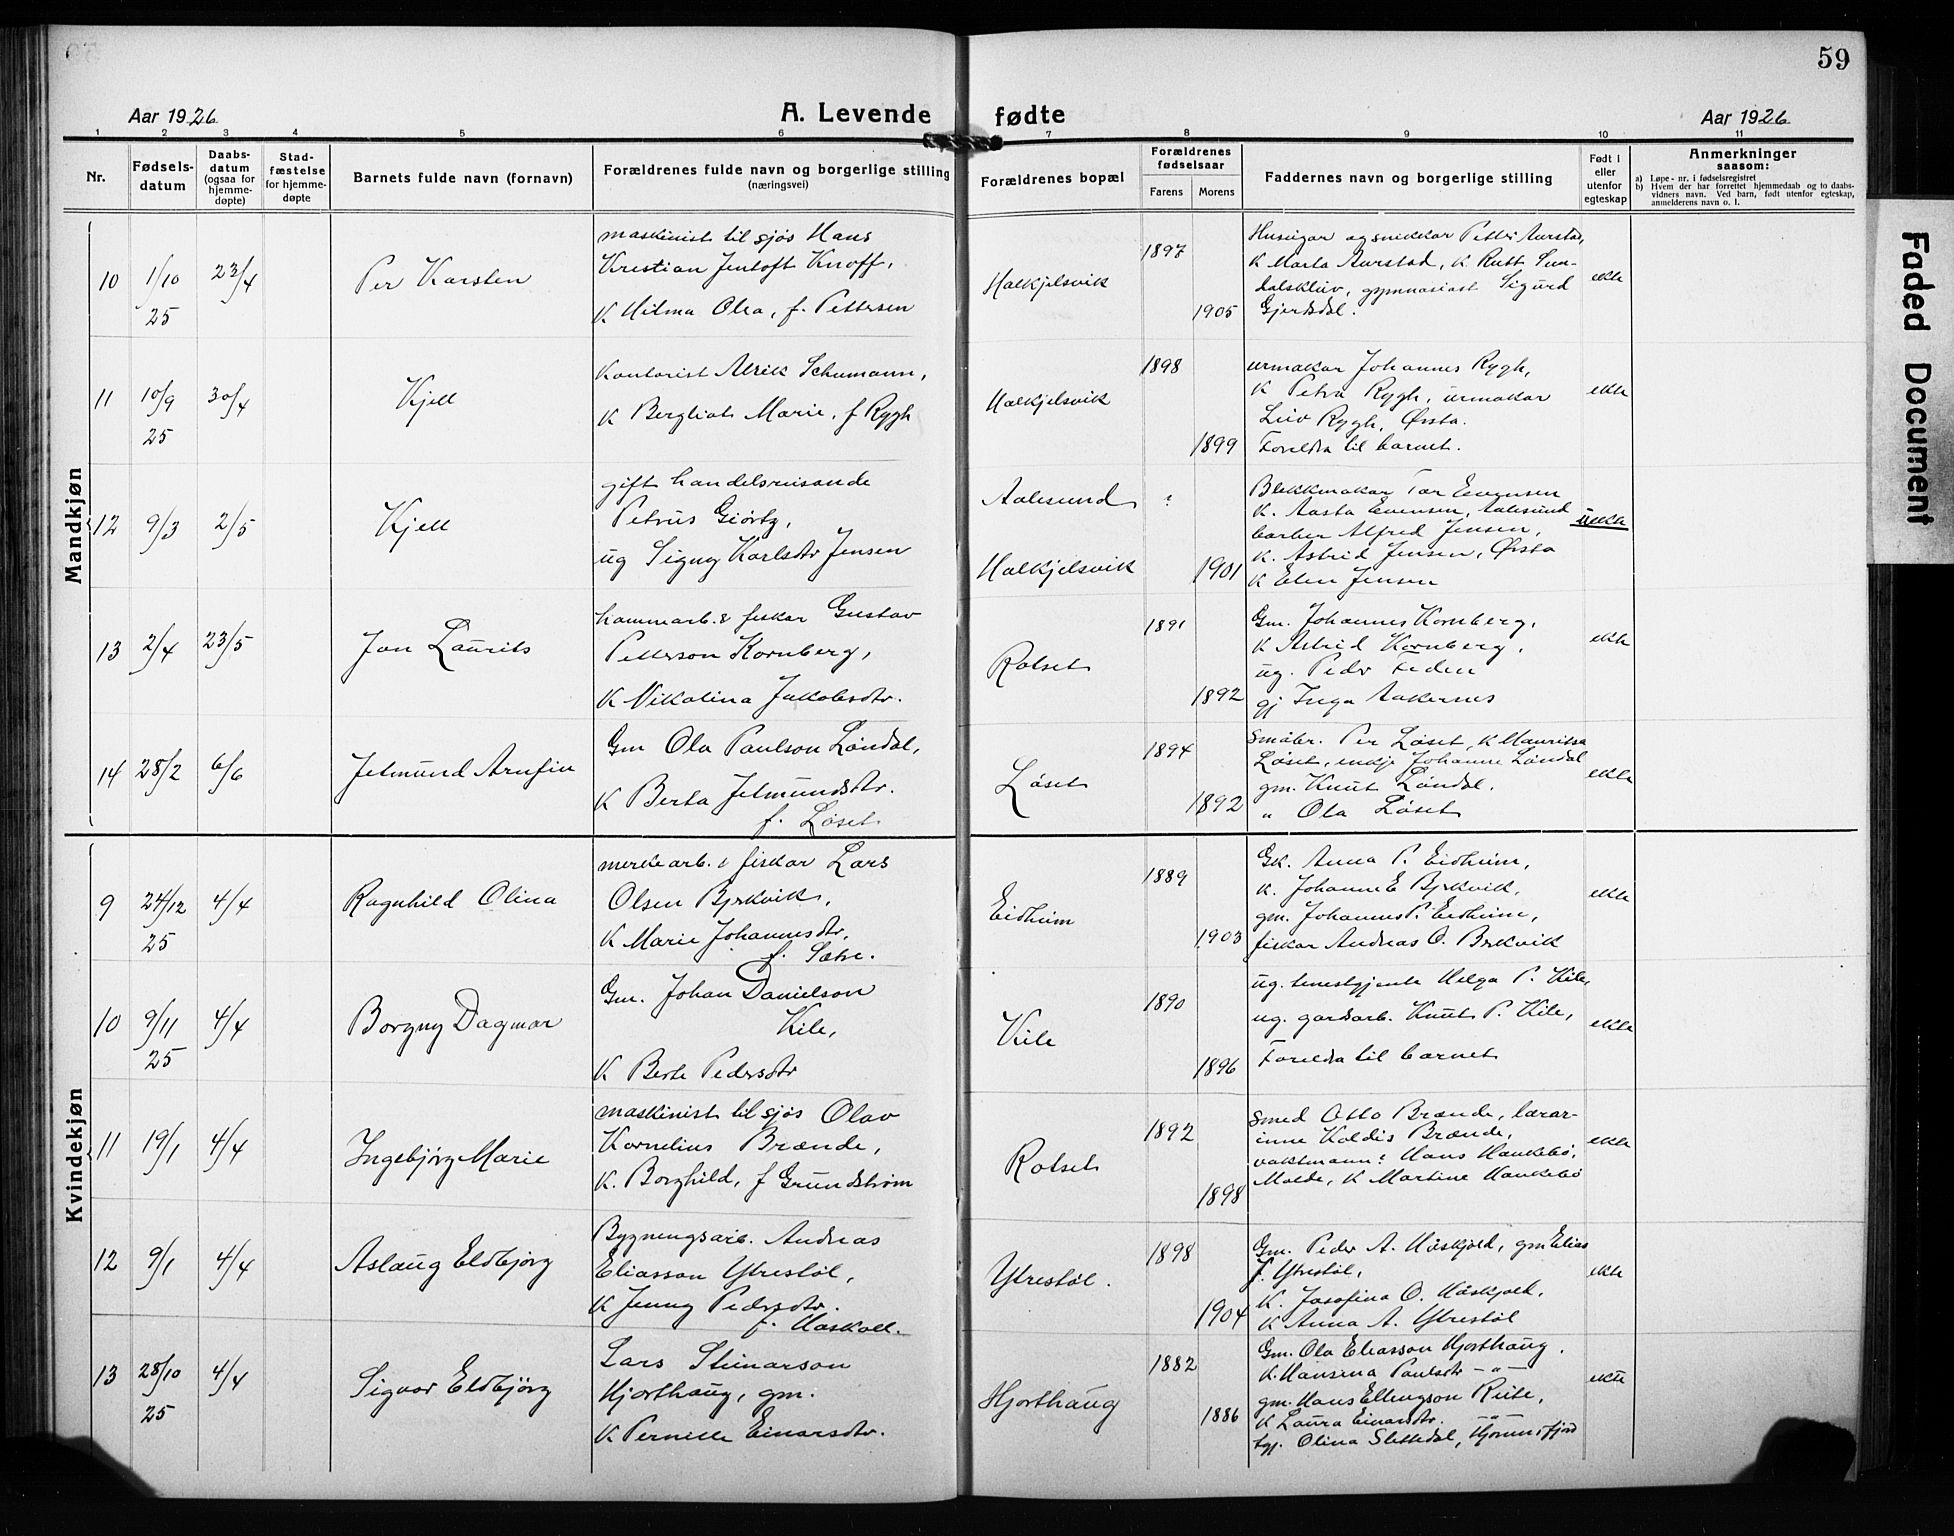 59
Aar 1926
A. Levende fødte
Aar 1926
1 2 3 4 5 6 7 8 9 10 11
Nr.
Fødsels-
datum
Daabs-
datum
(ogsaa for
hjemme-
døpte)
Stad-
fæstelse
for hjemme-
døpte
Barnets fulde navn (fornavn)
Forældrenes fulde navn og borgerlige stilling
(næringsvei)
Forældrenes bopæl
Forældrenes
fødselsaar
Farens Morens
Faddernes navn og borgerlige stilling
Født i
eller
utenfor
egteskap
Anmerkninger
saasom:
a) Løpe-nr. i fødselsregistret
b) Hvem der har forrettet hjemmedaab og to daabs-
vidners navn. Ved barn, født utenfor egteskap,
anmelderens navn o. l.
Mandkjøn
10
1/10
25
23/4
Per Karsten
maskinist til sjøs Hans
Kristian Jentoft Knoff,
K Hilma Olea, f. Pettersen
Halkjelsvik
1897
1905
Huseigar og snikkar Petter Aurstad,
K Marta Aurstad, K Rutt Sun-
dalskliv, gymnasiast Sigurd
Gjertsdal.
ekte
11
10/9
25
30/4
Kjell
Kontorist Alrik Schumann,
K Bergliot Marie, f Rygh
Halkjelsvik
1898
1899
urmakar Johannes Rygh,
K Petra Rygh, urmakar
Leiv Rygh, Ørsta.
Foreldra til barnet.
ekte
12
9/3
2/5
Kjell
gift handelsreisande
Petrus Giørtz,
ug Signy Karlsdtr Jensen
Aalesund
Halkjelsvik
?
1901
Blekkmakar Tor Evensen
K. Aasta Evensen, Aalesund
barber Alfred Jensen,
K. Astrid Jensen, Ørsta
K Elen Jensen
uekte
13
2/4
23/5
Jon Laurits
hamnarb. & fiskar Gustav
Petterson Kornberg,
K Nikolina Jakobsdtr.
Rotset
1891
1892
Gm. Johannes Kornberg,
K Astrid Kornberg,
ug. Peder
gj Inga Aakernes
ekte
14
28/2
6/6
Jetmund Arnfin
Gm Ola Paulson Løndal,
K Berta Jetmundsdtr.
f. Løset
Løset
1894
1892
Småbr. Per Løset, K Mauritsa
Løset, enkje Johanne Løndal
gm. Knut Løndal.
" Ola Løset
ekte
Kvindekjøn
9
24/12
25
4/4
Ragnhild Olina
arb. & fiskar Lars
Olsen Bjrkvik,
K Marie Johannesdtr.
f. Sætre.
Eidheim
1889
1903
Gk. Anna P. Eidheim,
K. Johanne E Bjrkvik,
gm. Johannes P. Eidheim,
fiskar Andreas O. Brkvik
ekte
10
9/11
25
4/4
Borgny Dagmar
Gm. Johan Danielson
Kile,
K Berte Pedersdtr
Kile
1890
1896
ug. tenestgjente Helga P. Kile,
ug. gardsarb. Knut P. Kile,
Foreldra til barnet
ekte
11
19/1
4/4
Ingebjørg Marie
maskinist til sjøs Olav
Kornelius Brænde,
K. Borghild, f Grundstrøm
Rotset
1892
1898
Smed Otto Brænde, lærar-
inne Valdis Brænde,
vaktmann? Hans Haukebø,
Molde, K Martine Haukebø
ekte
12
9/1
4/4
Aslaug Eldbjørg
Bygningsarb. Andreas
Eliasson Ytrestøl,
K Jenny Pedersdtr.
f.
Ytrestøl.
1898
1904
Gm. Peder A. Håskjold, gm Elias
J. Ytrestøl,
K. Josefina O. Håskjold,
K Anna A. Ytrestøl
ekte
13
28/10
25
4/4
Sigvor Eldbjørg
Lars Steinarson
Hjorthaug, gm.
K Pernille Einarsdtr.
Hjorthaug
1882
1886
Gm. Ola Eliasson Hjorthaug.
K. Hansina Paulsdtr - " -
gm. Hans Ellingson Reite,
K Laura Einarsdtr. - " -
tgj. Olina Slettedal, Hjørundfjord
ekte
Faded Document